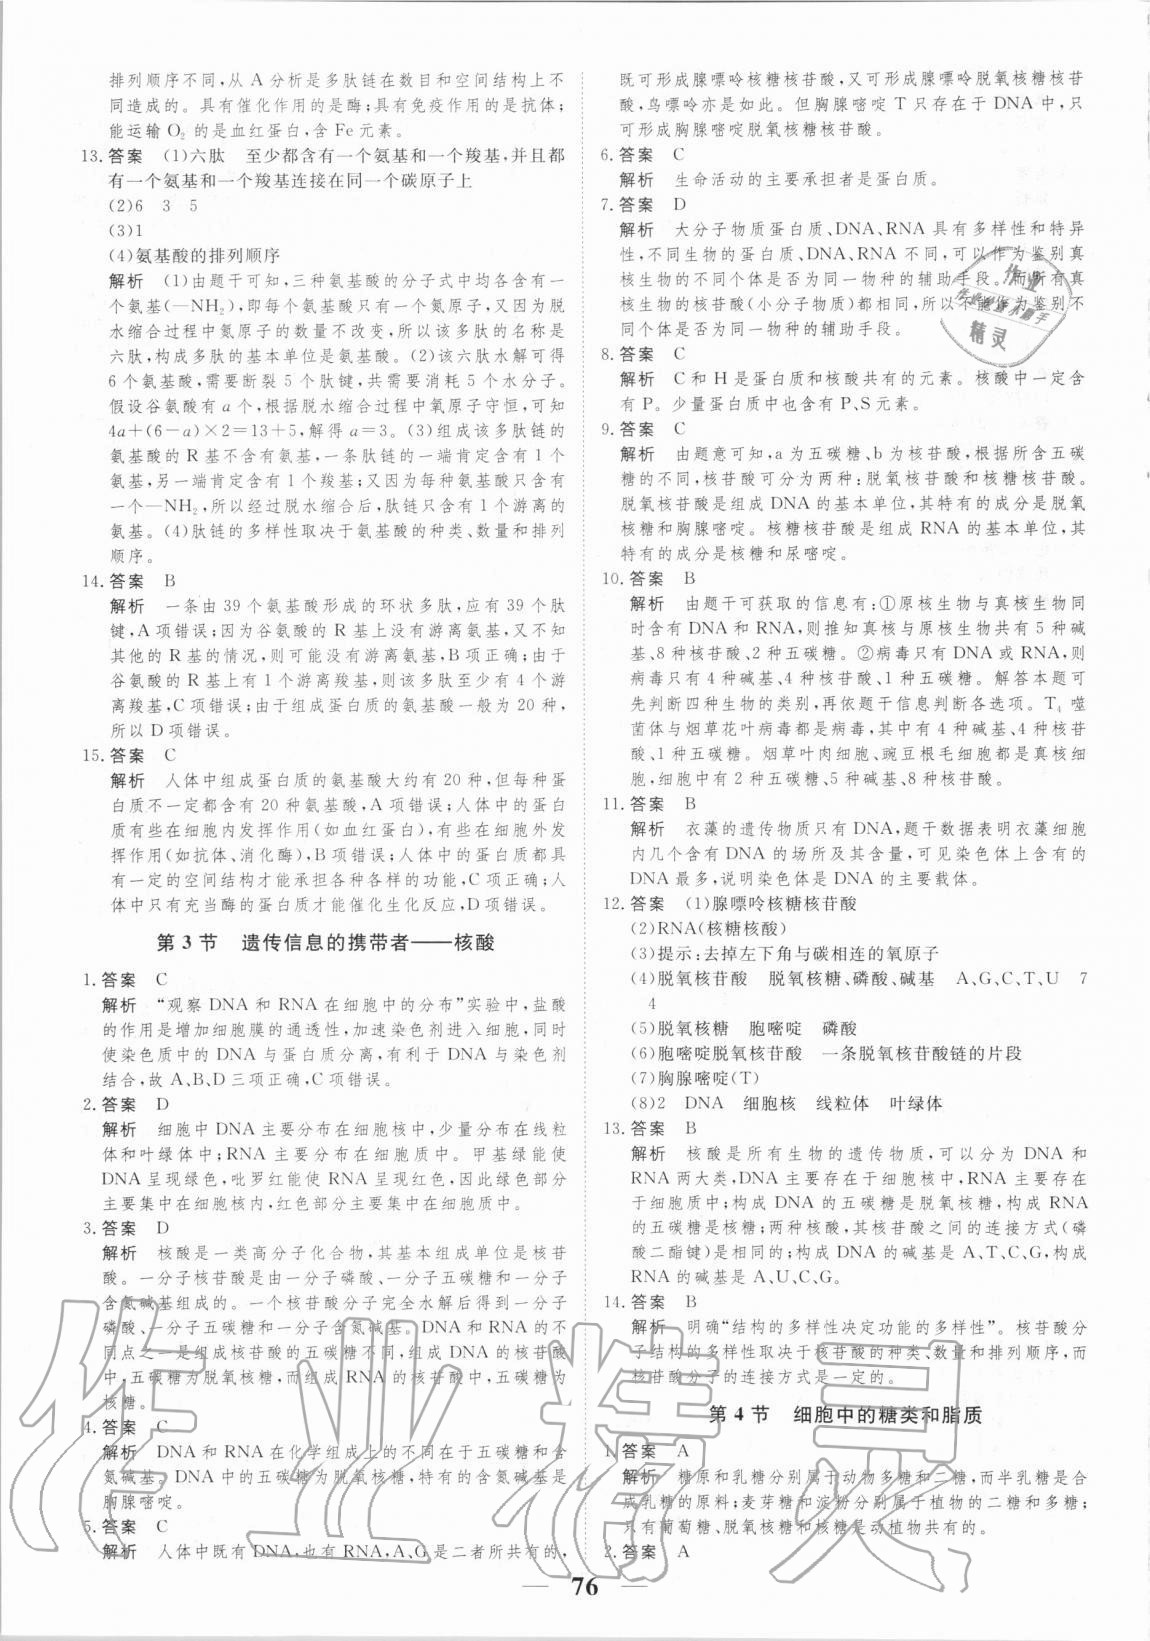 排列顺序不同,从 A 分析是多肽链在数目和空间结构上不
同造成的。具有催化作用的是酶;具有免疫作用的是抗体;
能运输 O₂ 的是血红蛋白,含 Fe 元素。
13. 答案 (1)六肽 至少都含有一个氨基和一个羧基,并且都
有一个氨基和一个羧基连接在同一个碳原子上
(2)6 3 5
(3)1
(4)氨基酸的排列顺序
解析 (1)由题干可知,三种氨基酸的分子式中均各含有一
个氨基(—NH₂),即每个氨基酸只有一个氮原子,又因为脱
水缩合过程中氮原子的数量不改变,所以该多肽的名称是
六肽,构成多肽的基本单位是氨基酸。(2)该多肽水解可得
6 个氨基酸,需要断裂 5 个肽键,共需要消耗 5 个水分子。
假设谷氨酸有 a 个,根据脱水缩合过程中氧原子守恒,可知
4a+(6-a)×2=13+5,解得 a=3。(3)组成该多肽链的
氨基酸的 R 基不含有氨基,一条肽链的一端肯定含有 1 个
氨基,另一端肯定含有 1 个羧基;又因每个氨基酸只含有
一个—NH₂,所以经过脱水缩合后,肽链只含有 1 个游离的
氨基。(4)肽链的多样性取决于氨基酸的种类、数量和排列
顺序。
14. 答案 B
解析 一条由 39 个氨基酸形成的环状多肽,应有 39 个肽
键,A 项错误;因为谷氨酸的 R 基上没有游离氨基,又不知
其他的 R 基的情况,则可能没有游离氨基,B项正确;由于
谷氨酸的 R 基上有游离羧基,则该多肽至少含有 4 个游
离羧基,C 项错误;由于组成蛋白质的氨基酸一般为 20 种,
所以 D 项错误。
15. 答案 C
解析 人体中组成蛋白质的氨基酸大约有 20 种,但每种蛋
白质不一定都含有 20 种氨基酸,A 项错误;人体中的蛋白
质有些在细胞内发挥作用(如血红蛋白),有些在细胞外发
挥作用(如抗体、消化酶),B 项错误;人体中的蛋白质都具
有一定的空间结构才能承担各种各样的功能,C 项正确;
人体中只有充当酶的蛋白质才能催化生化反应,D 项错误。
第 3 节 遗传信息的携带者——核酸
1. 答案 C
解析 “观察 DNA 和 RNA 在细胞中的分布”实验中,盐酸
的作用是增加细胞膜的通透性,加速染色剂进入细胞,同时
使染色质中的 DNA 与蛋白质分离,有利于 DNA 与染色剂
结合,故 A、B、D 三项正确,C项错误。
2. 答案 D
解析 细胞中 DNA 主要分布在细胞核中,少量分布在线粒
体和叶绿体中;RNA 主要分布在细胞质中。甲基绿能使
DNA 呈现绿色,吡罗红能使 RNA 呈现红色,因此绿色部分
主要集中在细胞核内,红色部分主要集中在细胞质中。
3. 答案 D
解析 核酸是一类高分子化合物,其基本组成单位是核苷
酸。一分子核苷酸是由一分子磷酸、一分子五碳糖和一分子
含氮碱基组成的。一个核苷酸分子完全水解后得到一分子
磷酸、一分子五碳糖和一分子含氮碱基。DNA 和 RNA 的不
同点之一是组成核苷酸的五碳糖不同,组成 DNA 的核苷酸
中,五碳糖为脱氧核糖,而组成 RNA 的核苷酸中,五碳糖为
核糖。
4. 答案 C
解析 DNA 和 RNA 在化学组成上的不同在于五碳糖和含
氮碱基,DNA 中的五碳糖为脱氧核糖,特有的含氮碱基是
胸腺嘧啶。
5. 答案 C
解析 人体中既有 DNA,也有 RNA,A、G 是二者所共有的,
既可形成腺嘌呤核糖核苷酸,又可形成腺嘌呤脱氧核糖核苷
酸,鸟嘌呤亦是如此。但胸腺嘧啶 T 只存在于 DNA 中,只
可形成胸腺嘧啶脱氧核糖核苷酸。
6. 答案 C
解析 生命活动的主要承担者是蛋白质。
7. 答案 D
解析 大分子物质蛋白质、DNA、RNA 具有多样性和特异
性,不同生物的蛋白质、DNA、RNA 不同,可以作为鉴别真
核生物的不同个体是否为同一物种的辅助手段。而所有真
核生物的核苷酸(小分子物质)都相同,所以不能作为鉴别不
同个体是否为同一物种的辅助手段。
8. 答案 C
解析 C 和 H 是蛋白质和核酸共有的元素。核酸中一定含
有 P。少量蛋白质中也含有 P、S元素。
9. 答案 C
解析 由题意可知,a 为五碳糖、b 为核苷酸,根据所含五碳
糖的不同,核苷酸可分为两种:脱氧核苷酸和核糖核苷酸。
脱氧核苷酸是组成 DNA 的基本单位,其特有的成分是脱氧
核糖和胸腺嘧啶。核糖核苷酸是组成 RNA 的基本单位,其
特有的成分是核糖和尿嘧啶。
10. 答案 B
解析 由题干可获取的信息有:①原核生物与真核生物同
时含有 DNA 和 RNA,则推知真核与原核生物共有 5 种碱
基、8种核苷酸、2 种五碳糖。②病毒只有 DNA 或 RNA,则
病毒只有 4 种碱基、4 种核苷酸、1 种五碳糖。解答本题可
先判断四种生物的类别,再依题干信息判断各选项。T₄ 噬
菌体与烟草花叶病毒都是病毒,其中有 4 种碱基、4 种核苷
酸、1 种五碳糖。烟草叶肉细胞、豌豆根毛细胞都是真核细
胞,细胞中有 2 种五碳糖、5 种碱基、8种核苷酸。
11. 答案 B
解析 衣藻的遗传物质只有 DNA,题干数据表明衣藻细胞
内几个含有 DNA 的场所及其含量,可见染色体上含有的
DNA 最多,说明染色体是 DNA 的主要载体。
12. 答案 (1)腺嘌呤核糖核苷酸
(2)RNA(核糖核酸)
(3)提示:去掉左下角与碳相连的氧原子
(4)脱氧核苷酸 脱氧核糖、磷酸、碱基 A、G、C、T、U 7
4
(5)脱氧核糖 胞嘧啶 磷酸
(6)胞嘧啶脱氧核苷酸 一条脱氧核苷酸链的片段
(7)胸腺嘧啶(T)
(8)2 DNA 细胞核 线粒体 叶绿体
13. 答案 B
解析 核酸是所有生物的遗传物质,可以分为 DNA 和
RNA 两大类,DNA 主要存在于细胞核中,RNA 主要存在
于细胞质中;构成 DNA 的五碳糖是脱氧核糖,构成 RNA
的五碳糖是核糖;两种核酸,其核苷酸之间的连接方式(磷
酸二酯键)是相同的;构成 DNA 的碱基是 A、T、C、G,构成
RNA 的碱基是 A、U、C、G。
14. 答案 B
解析 明确“结构的多样性决定功能的多样性”。核苷酸分
子结构的多样性取决于核苷酸的种类、数量和排列顺序,而
核苷酸分子的连接方式是一定的。
第 4 节 细胞中的糖类和脂质
1. 答案 A
解析 糖原和乳糖分别属于动物多糖和二糖,而半乳糖是合
成乳糖的原料;麦芽糖和淀粉分别属于植物的二糖和多糖;
只有葡萄糖、脱氧核糖和核糖是动植物共有的。
2. 答案 A
76
作业精灵
作业
精灵